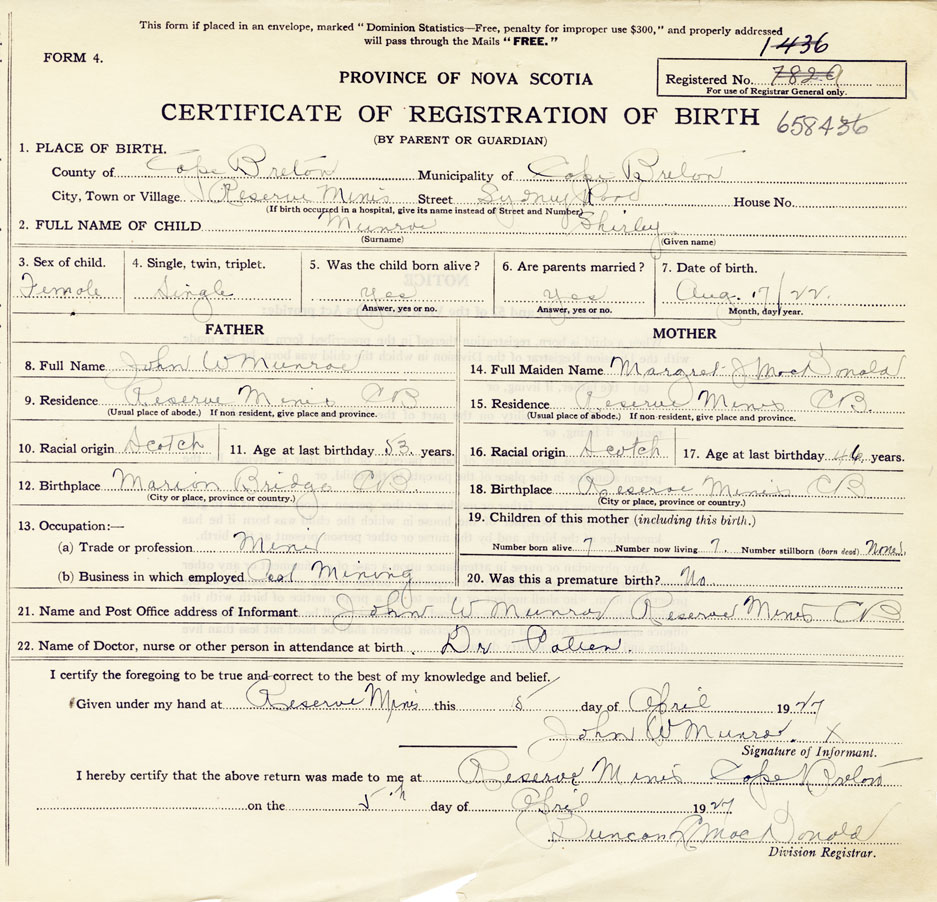 This form if placed in an envelope, marked "Dominion Statistics—Free, penalty for improper use $300," and properly addressed
will pass through the Mails "FREE."
1436
FORM 4.
PROVINCE OF NOVA SCOTIA
Registered No. 782
For use of Registrar General only.
CERTIFICATE OF REGISTRATION OF BIRTH 658436
(BY PARENT OR GUARDIAN)
1. PLACE OF BIRTH.
County of Cape Breton Municipality of Cape Breton
City, Town or Village Reserve Mines Street Sydney Road House No.
(If birth occurred in a hospital, give its name instead of Street and Number)
2. FULL NAME OF CHILD Munroe Shirley
(Surname) (Given name)
3. Sex of child. 4. Single, twin, triplet. 5. Was the child born alive? 6. Are parents married? 7. Date of birth.
Female Single yes yes Aug. 17/22.
Answer, yes or no. Answer, yes or no. Month, day, year.
FATHER MOTHER
8. Full Name John W Munroe 14. Full Maiden Name Margret J MacDonald
9. Residence Reserve Mines CB 15. Residence Reserve Mines CB.
(Usual place of abode.) If non resident, give place and province. (Usual place of abode.) If non-resident, give place and province.
10. Racial origin Scotch 11. Age at last birthday 53. years. 16. Racial origin Scotch 17. Age at last birthday 46 years.
12. Birthplace Marion Bridge CB. 18. Birthplace Reserve Mines CB
(City or place, province or country.) (City or place, province or country.)
13. Occupation:— 19. Children of this mother (including this birth.)
(a) Trade or profession Miner Number born alive 7 Number now living 7. Number stillborn (born dead) None.
(b) Business in which employed Coal Mining 20. Was this a premature birth? No
21. Name and Post Office address of Informant John W Munroe Reserve Mines CB
22. Name of Doctor, nurse or other person in attendance at birth Dr
I certify the foregoing to be true and correct to the best of my knowledge and belief.
Given under my hand at Reserve Mines this 5 day of April 1927
John W Munroe. X
Signature of Informant.
I hereby certify that the above return was made to me at Reserve Mines Cape Breton
on the 5th day of April 1927
Duncan MacDonald
Division Registrar.